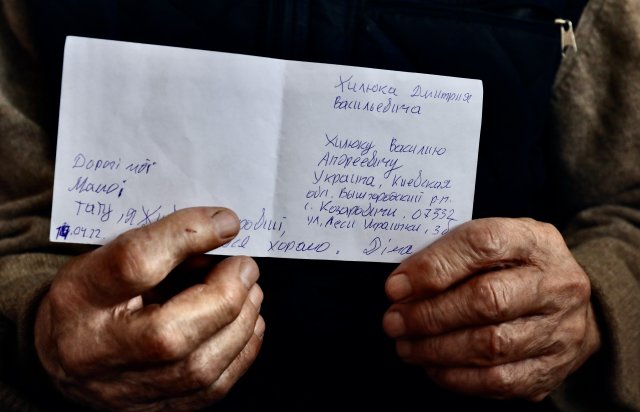 Хилюка Дмитрия
Васильевича
Хилюку Василию
Андреевичу
Украина, Киевская
обл. Вышгородский р-н.
с. Козаровичи, 07332
ул. Леси Украинки,
Дорогі мої
Мамо і
тату, я
.04.22. все хорошо. Діма